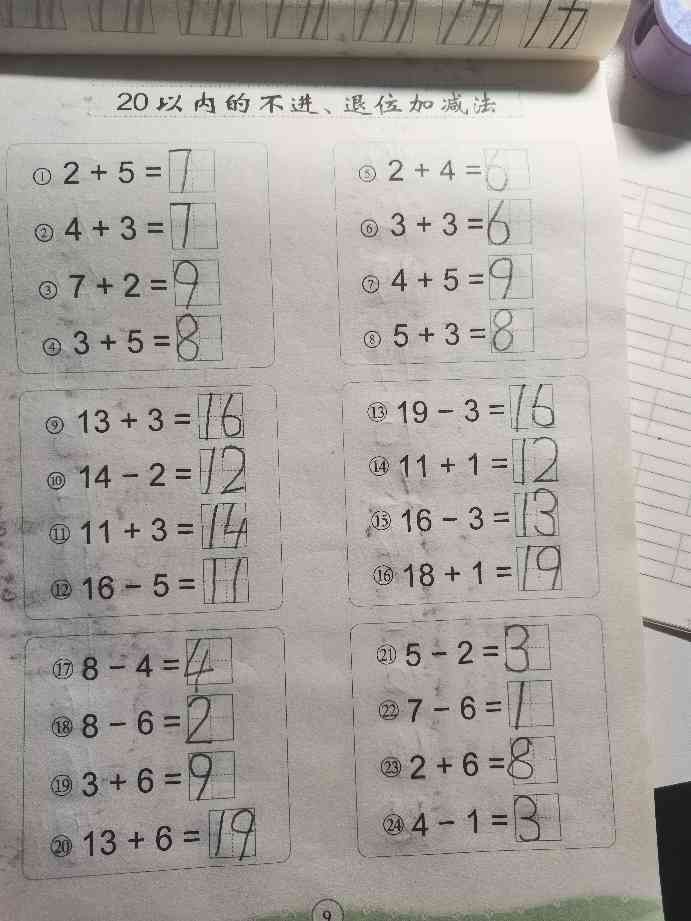 20以内的不进、退位加减法
① 2 + 5 = 7
② 4 + 3 = 7
③ 7 + 2 = 9
④ 3 + 5 = 8
⑤ 2 + 4 = 6
⑥ 3 + 3 = 6
⑦ 4 + 5 = 9
⑧ 5 + 3 = 8
⑨ 13 + 3 = 16
⑩ 14 − 2 = 12
⑪ 11 + 3 = 14
⑫ 16 − 5 = 11
⑬ 19 − 3 = 16
⑭ 11 + 1 = 12
⑮ 16 − 3 = 13
⑯ 18 + 1 = 19
⑰ 8 − 4 = 4
⑱ 8 − 6 = 2
⑲ 3 + 6 = 9
⑳ 13 + 6 = 19
㉑ 5 − 2 = 3
㉒ 7 − 6 = 1
㉓ 2 + 6 = 8
㉔ 4 − 1 = 3
9